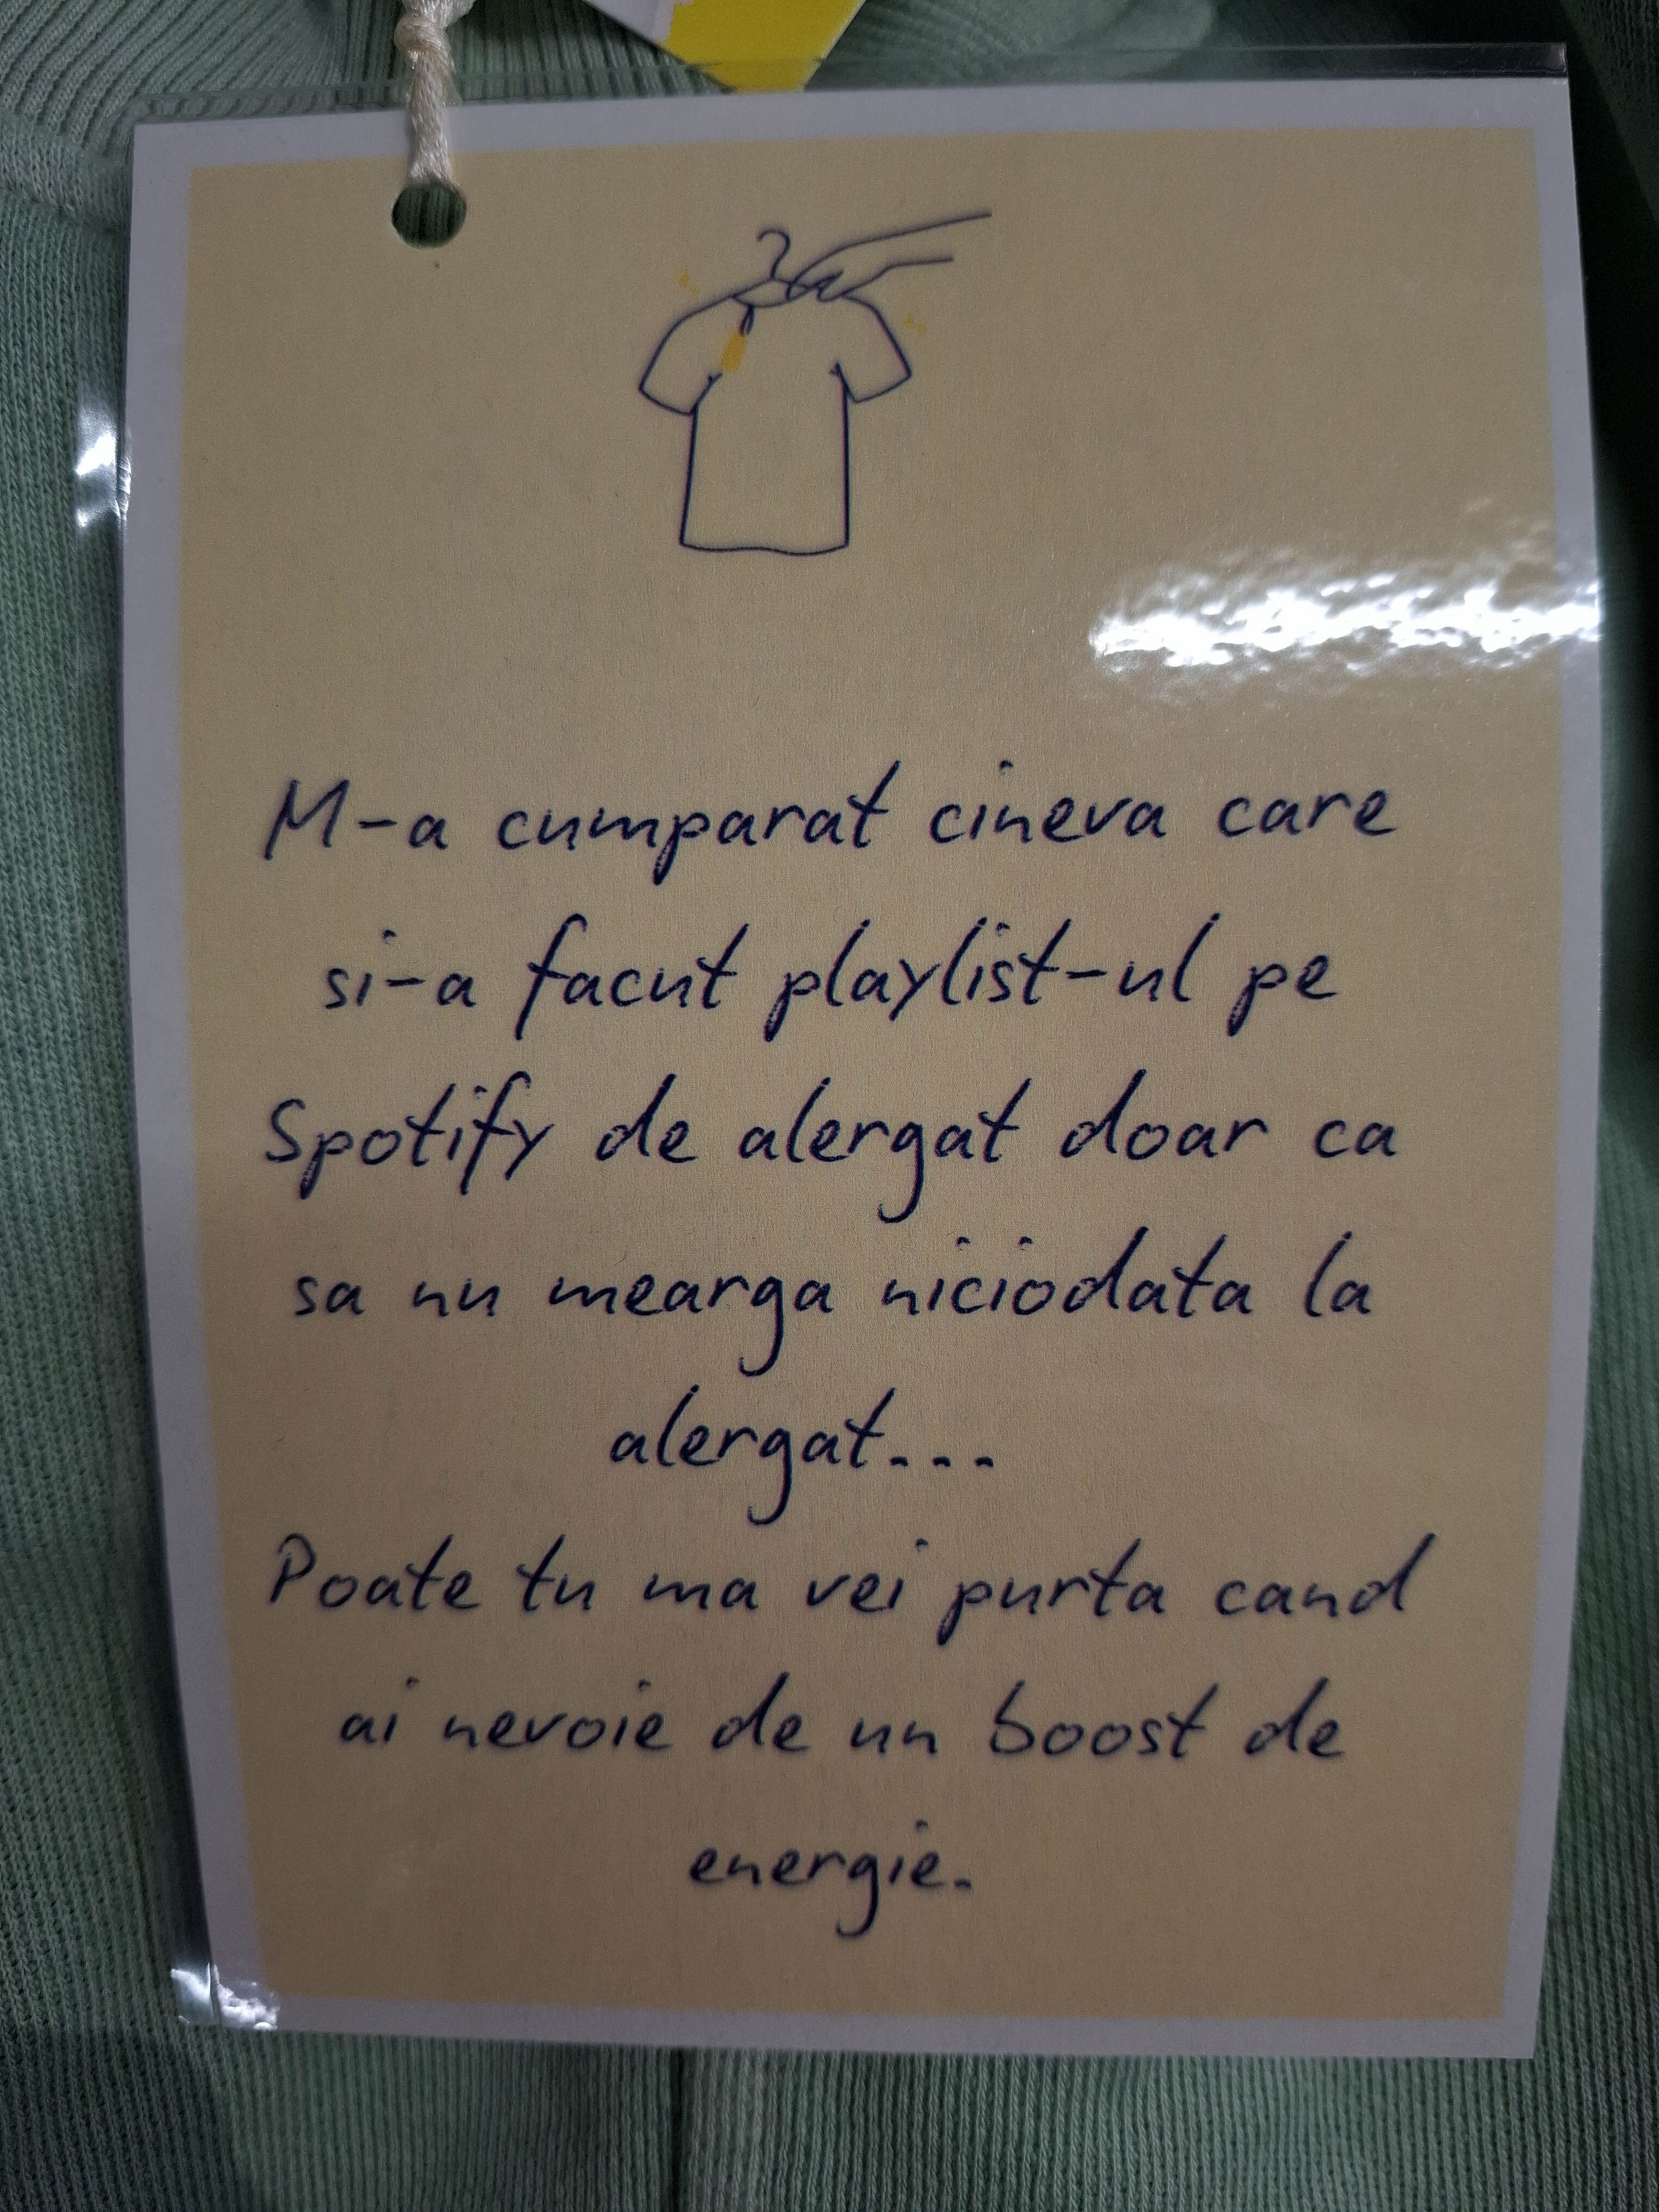 M-a cumparat cineva care
si-a facut playlist-ul pe
Spotify de alergat doar ca
sa nu mearga niciodata la
alergat...
Poate tu ma vei purta cand
ai nevoie de un boost de
energie.